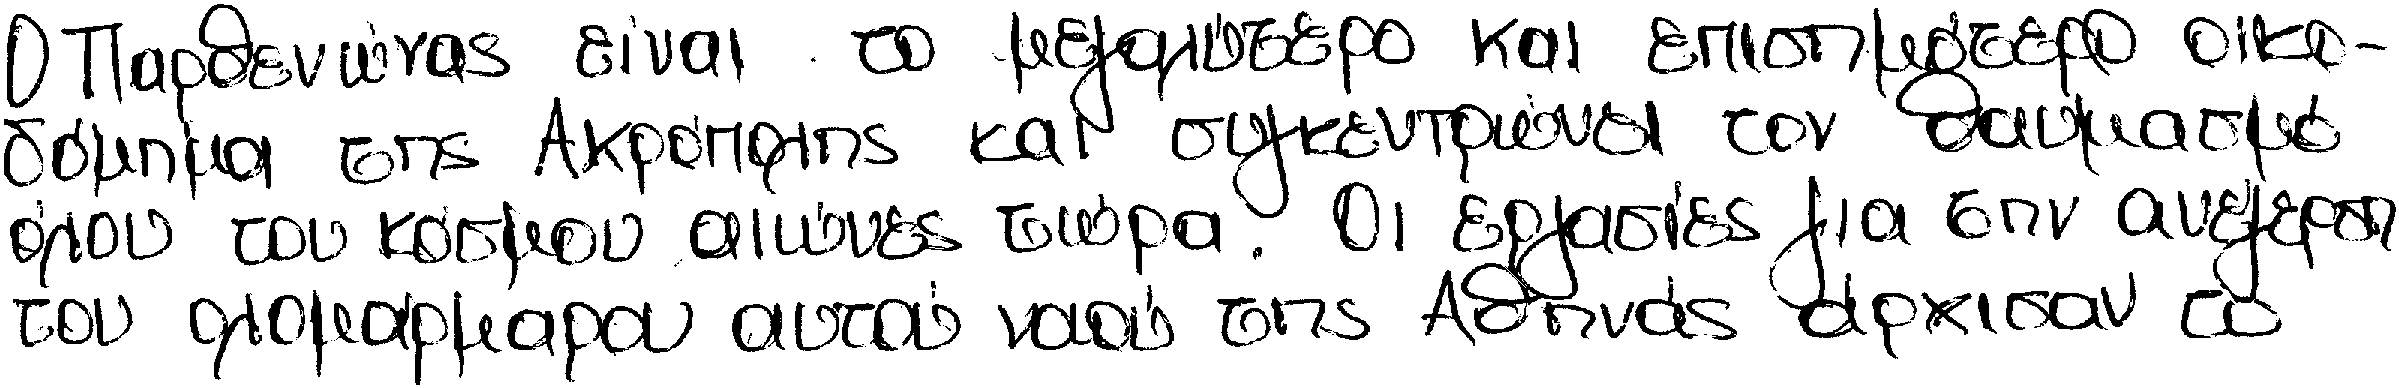 Ο Παρθενώνας είναι το μεγαλύτερο και επισημότερο οικο-
δόμημα της Ακρόπολης και συγκεντρώνει τον θαυμασμό
όλου του κόσμου αιώνες τώρα. Οι εργασίες για την ανέγερση
του ολομάρμαρου αυτού ναού της Αθηνάς άρχισαν το